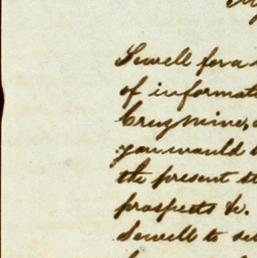 Sewell for a
of informat
Cruz Mine,
you would
the present st
prospects &c.
Sewell to se